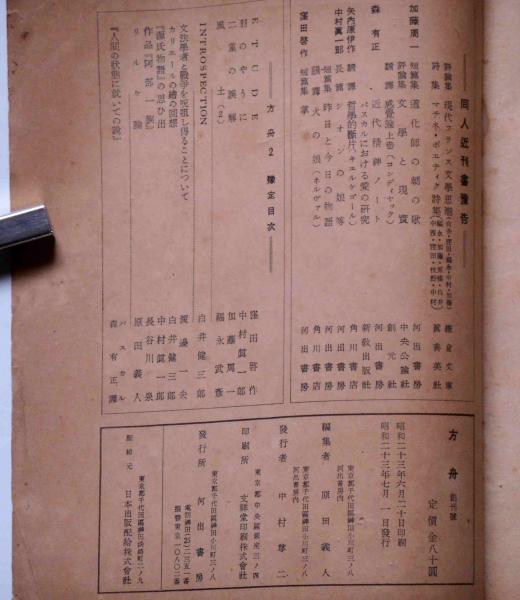 同人近刊書豫告
評論集 現代フランス文學思潮
詩集 マチネ・ポエティク詩集 鎌倉文庫
眞善美社
加藤周一 短篇集 道化師の朝の歌 河出書房
評論集 文學と現實 中央公論社
飜譯 感覺論上卷(コンディヤック) 創元社
森有正 近代精神ノート 河出書房
パスカルにおける愛の研究 新敎出版社
矢內原伊作 飜譯 哲學的斷片(キェルケゴール) 角川書店
中村眞一郎 長篇 シオンの娘等 河出書房
短篇集 昨日と今日の物語 河出書房
飜譯 火の娘(ネルヴァル) 角川書店
窪田啓作 短篇集 掌 河出書房
方舟2 豫定目次
ETUDE
羽のやうに 窪田啓作
二重の誤解 中村眞一郎
加藤周一
風土(2) 福永武彥
INTROSPECTION 白井健三郎
文法學者も戰爭を呪詛し得ることについて 渡邊一夫
カリエールの繪の囘想 白井健三郎
『源氏物語』の思ひ出 中村眞一郎
作品『阿部一族』 長谷川泉
リルケ論 原田義人
『人間の狀態に就いての說』 パスカル
森有正譯
方舟 創刊號
定價金八十圓
昭和二十三年六月二十日印刷
昭和二十三年七月一日發行
東京都千代田區神田小川町三ノ八
河出書房內
編集者 原田義人
東京都千代田區神田小川町三ノ八
河出書房內
發行者 中村孝二
東京都中央區銀座三ノ四
印刷所 文祥堂印刷株式會社
東京都千代田區神田小川町三ノ八
發行所 河出書房
電話神田(25)二三五一番
振替東京一〇八〇二番
配給元 東京都千代田區神田淡路町二ノ九
日本出版配給株式會社